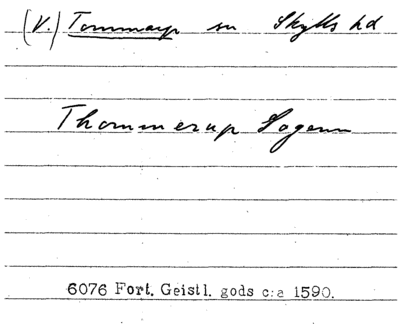 (V.) Tommarp sn Skytts hd
Thommerup Sogenn
6076 Fort. Geistl. gods c:a 1590.